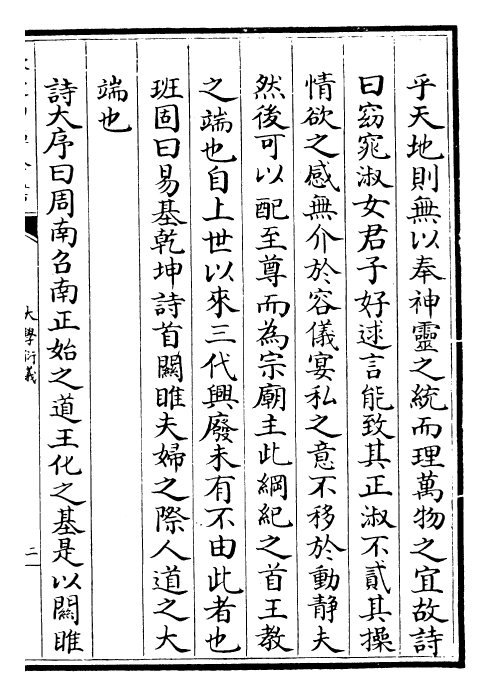 乎天地則無以奉神靈之統而理萬物之宜故詩
曰窈窕淑女君子好逑言能致其正淑不貳其操
情欲之感無介於容儀宴私之意不移於動静夫
然後可以配至尊而為宗廟主此綱紀之首王教
之端也自上世以來三代興廢未有不由此者也
班固曰易基乾坤詩首關睢夫婦之際人道之大
端也
詩大序曰周南召南正始之道王化之基是以關睢
大學衍義
二